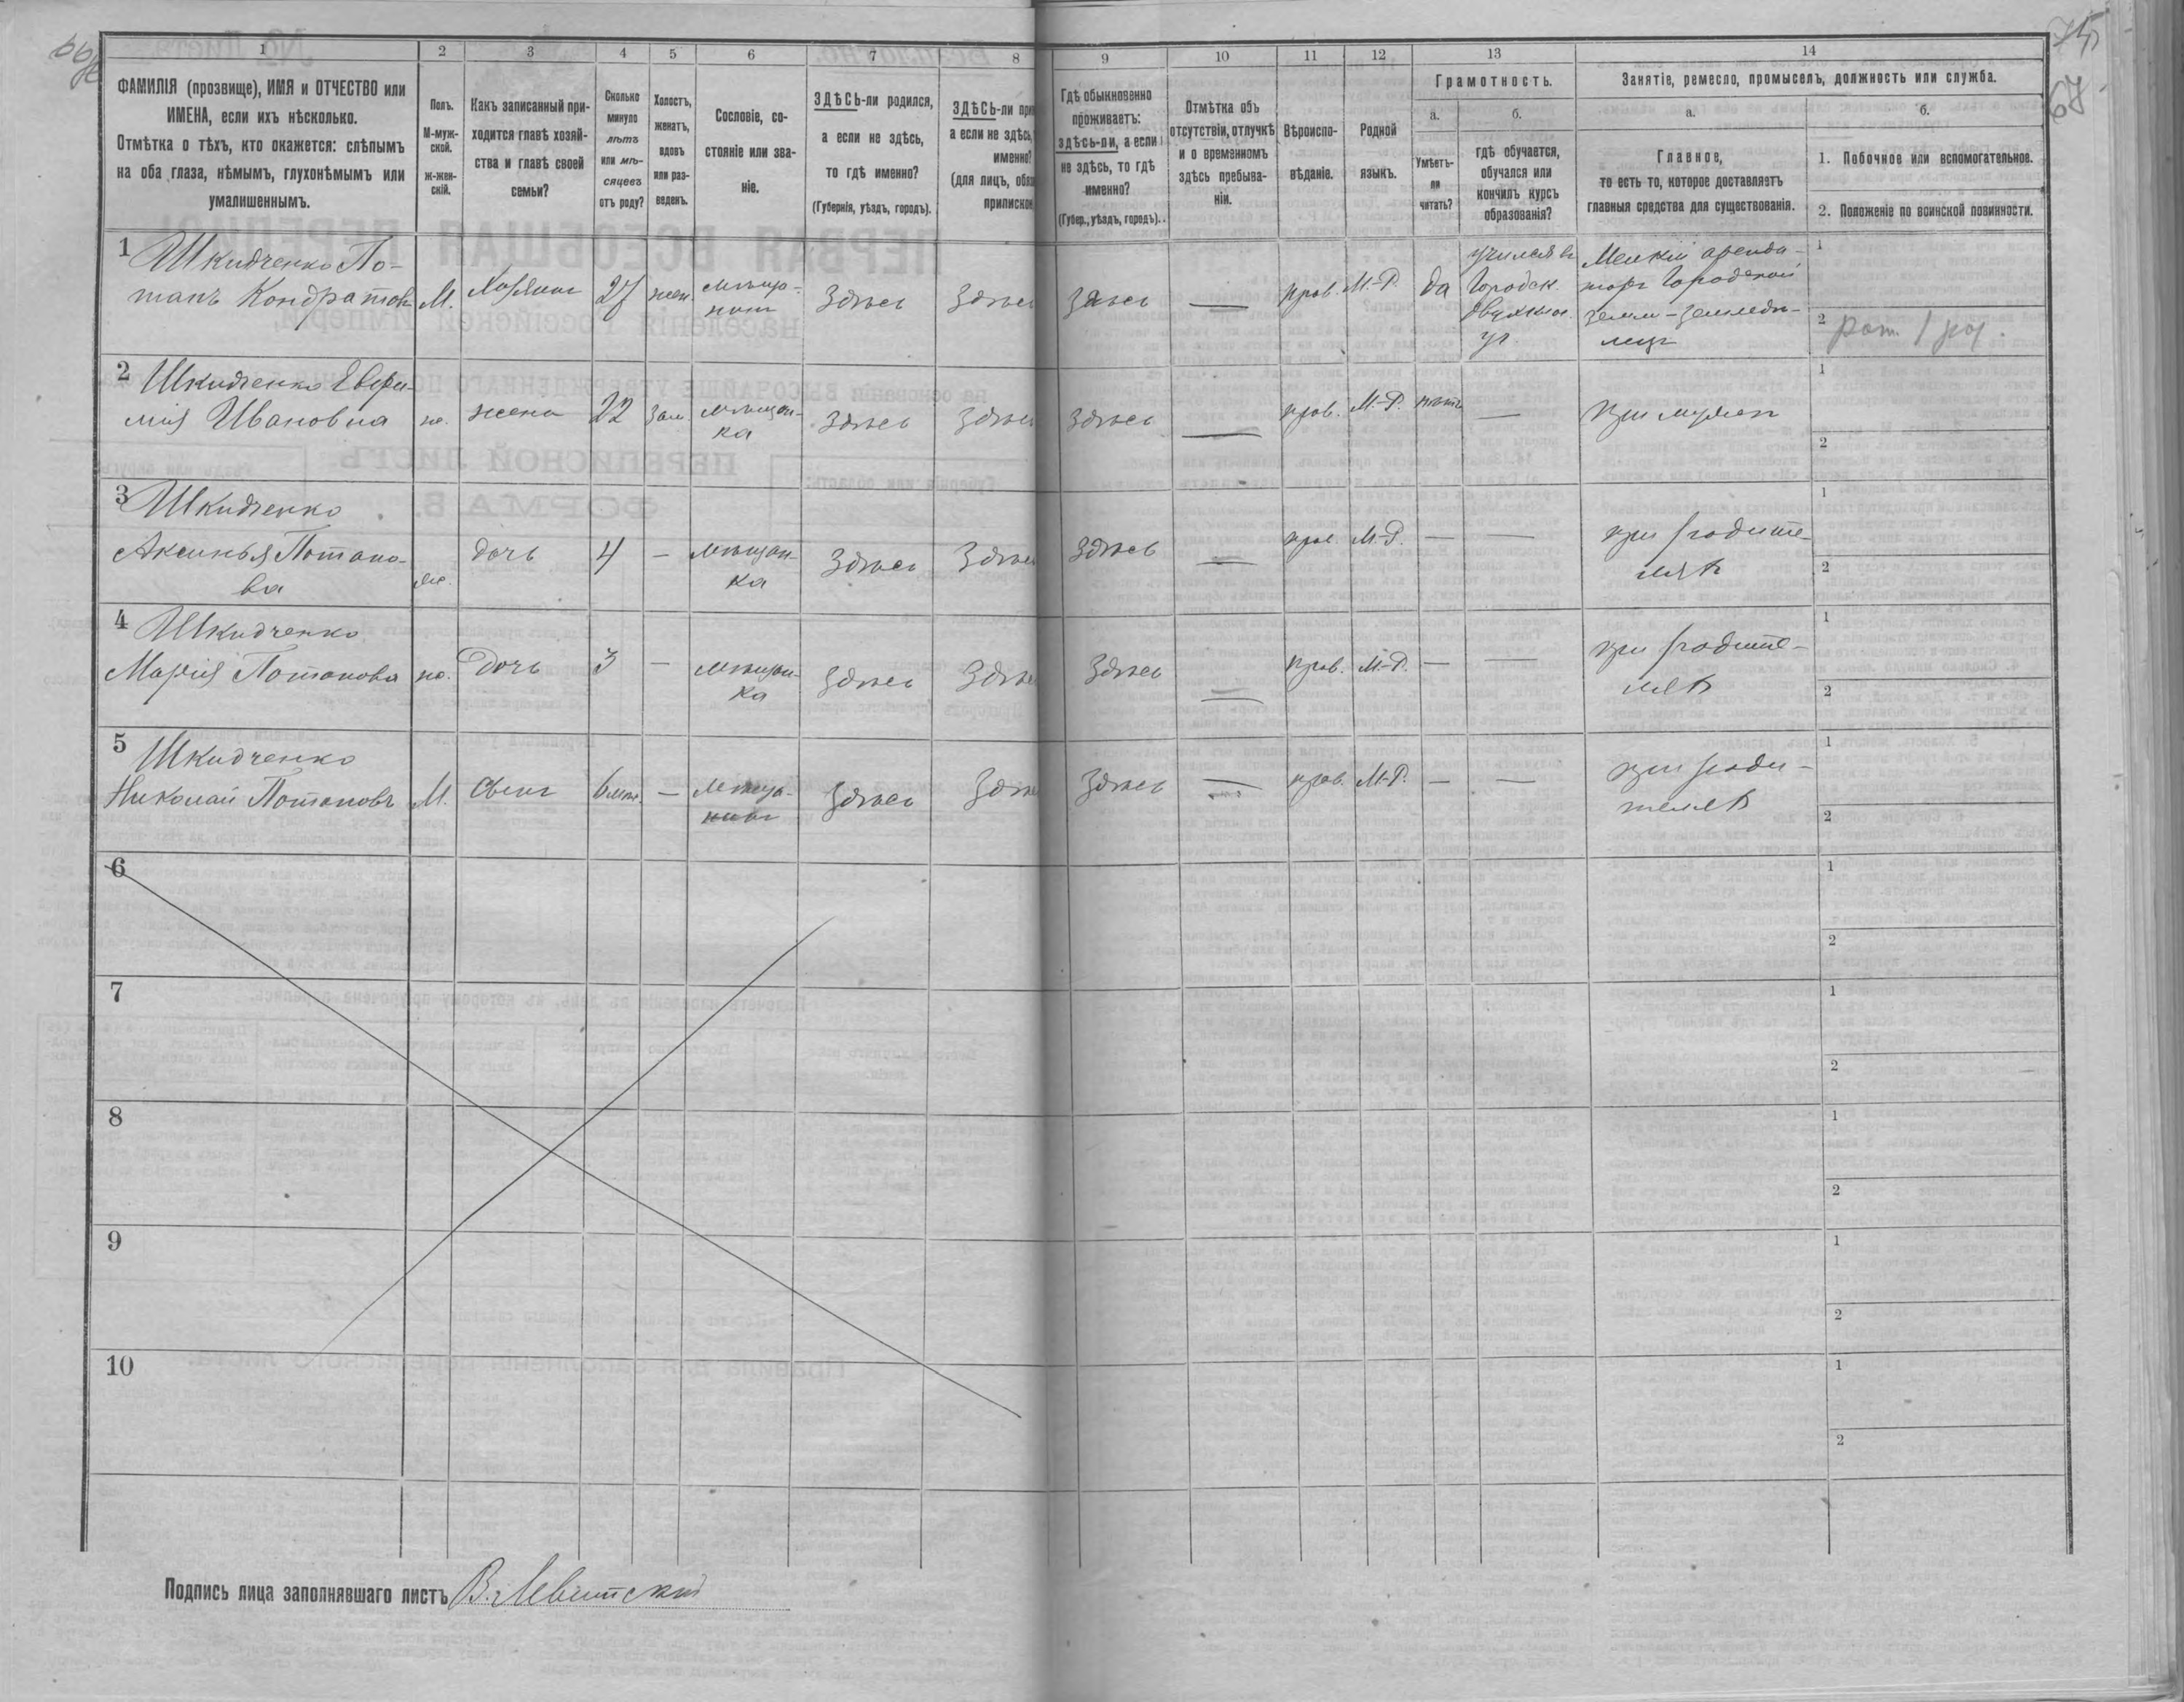 75
67
1 2 3 4 5 6 7 8 9 10 11 12 13 14
ФАМИЛІЯ (прозвище), ИМЯ и ОТЧЕСТВО или
ИМЕНА, если ихъ нѣсколько.
Отмѣтка о тѣхъ, кто окажется: слѣпымъ
на оба глаза, нѣмымъ, глухонѣмымъ или
умалишеннымъ.
Полъ.
М-муж-
ской.
ж-жен-
скій.
Какъ записанный при-
ходится главѣ хозяй-
ства и главѣ своей
семьи?
Сколько
минуло
лѣтъ
или мѣ-
сяцевъ
отъ роду?
Холостъ,
женатъ,
вдовъ
или раз-
веденъ.
Сословіе, со-
стояніе или зва-
ніе.
ЗДѢСЬ-ли родился,
а если не здѣсь,
то гдѣ именно?
(Губернія, уѣздъ, городъ).
ЗДѢСЬ-ли при
а если не здѣсь,
именно?
(для лицъ, обяз
припискою
Гдѣ обыкновенно
проживаетъ:
здѣсь-ли, а если
не здѣсь, то гдѣ
именно?
(Губер., уѣздъ, городъ).
Отмѣтка объ
отсутствіи, отлучкѣ
и о временномъ
здѣсь пребыва-
ніи.
Вѣроиспо-
вѣданіе.
Родной
языкъ.
Грамотность.
а.
Умѣетъ-
ли
читать?
б.
гдѣ обучается,
обучался или
кончилъ курсъ
образованія?
Занятіе, ремесло, промыселъ, должность или служба.
а.
Главное,
то есть то, которое доставляетъ
главныя средства для существованія.
б.
1. Побочное или вспомогательное.
2. Положеніе по воинской повинности.
1 Шкидченко По-
тапъ Кондратовъ
М.
Хозяинъ
27
жен.
мѣща-
нинъ
Здѣсь
Здѣсь
Здѣсь
—
прав.
М.-Р.
да
училъся въ
Городск.
двухкл.
уч.
Мелкій аренда-
торъ Городской
земли - земледѣ-
лецъ
1
2
рат. 1 раз.
2 Шкидченко Евфи-
мія Ивановна
ж.
жена
22
зам.
мѣщан-
ка
Здѣсь
Здѣсь
Здѣсь
—
прав.
М.-Р.
нѣтъ
—
при мужѣ
1
2
3 Шкидченко
Аксинья Потапо-
ва
ж.
дочь
4
—
мѣщан-
ка
Здѣсь
Здѣсь
Здѣсь
—
прав.
М.-Р.
—
—
при родите-
ляхъ
1
2
4 Шкидченко
Марія Потапова
ж.
дочь
3
—
мѣщан-
ка
Здѣсь
Здѣсь
Здѣсь
—
прав.
М.-Р.
—
—
при родите-
ляхъ
1
2
5 Шкидченко
Николай Потаповъ
М.
сынъ
6 мѣс.
—
мѣща-
нинъ
Здѣсь
Здѣсь
Здѣсь
—
прав.
М.-Р.
—
—
при роди-
теляхъ
1
2
6
1
2
7
1
2
8
1
2
9
1
2
10
1
2
Подпись лица заполнявшаго листъ В. Левитскій